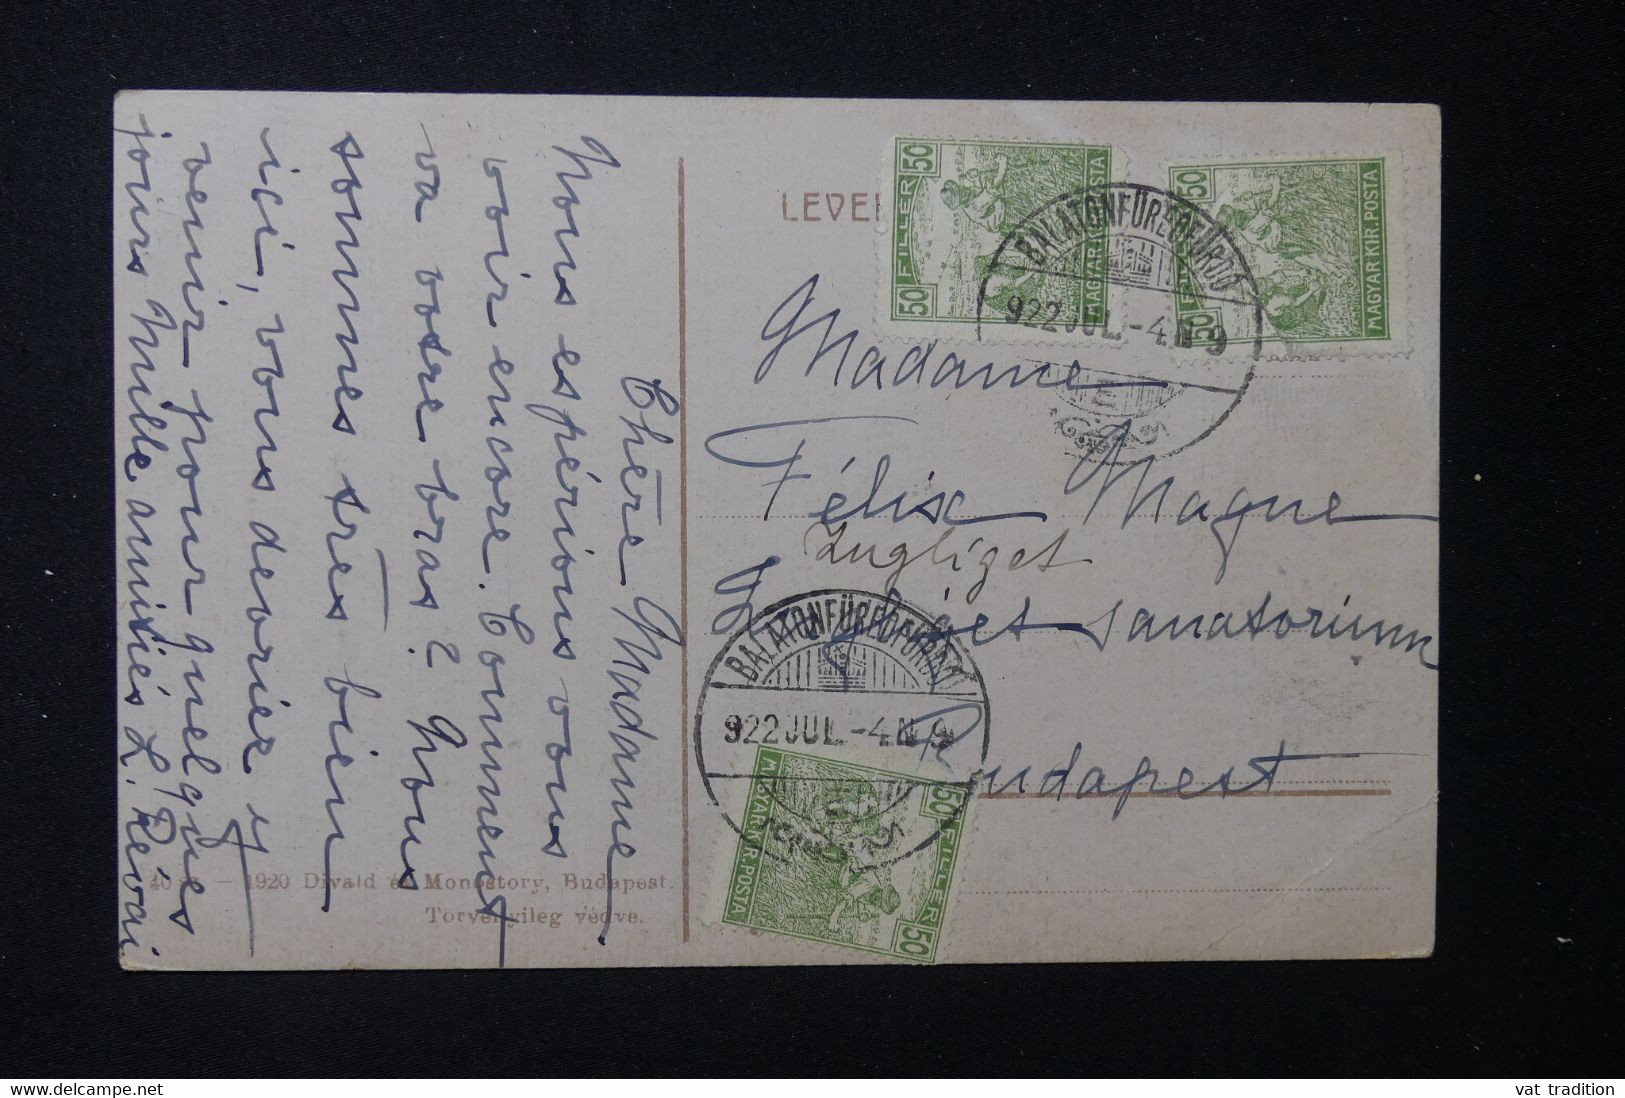 Chère Madame.
Nous espérions vous
voir encore. Comment
va votre bras? Nous
sommes très bien
ici, vous devriez y
venir pour quelques
jours Mille amitiés L. Révai
40 — 1920 Divald és Monostory, Budapest.
Törvényileg védve.
LEVE
50 FILLER 50
MAGYAR KIR. POSTA
50 50
MAGYAR KIR. POSTA
BALATONFÜREDFÜRDŐ
922 JUL. -4. N 9
Madame
Félix Magne
Zugliget
sanatorium
Budapest
BALATONFÜREDFÜRDŐ
922 JUL. -4. N 9
50 FILLER 50
MAGYAR KIR. POSTA
vat tradition
www.delcampe.net